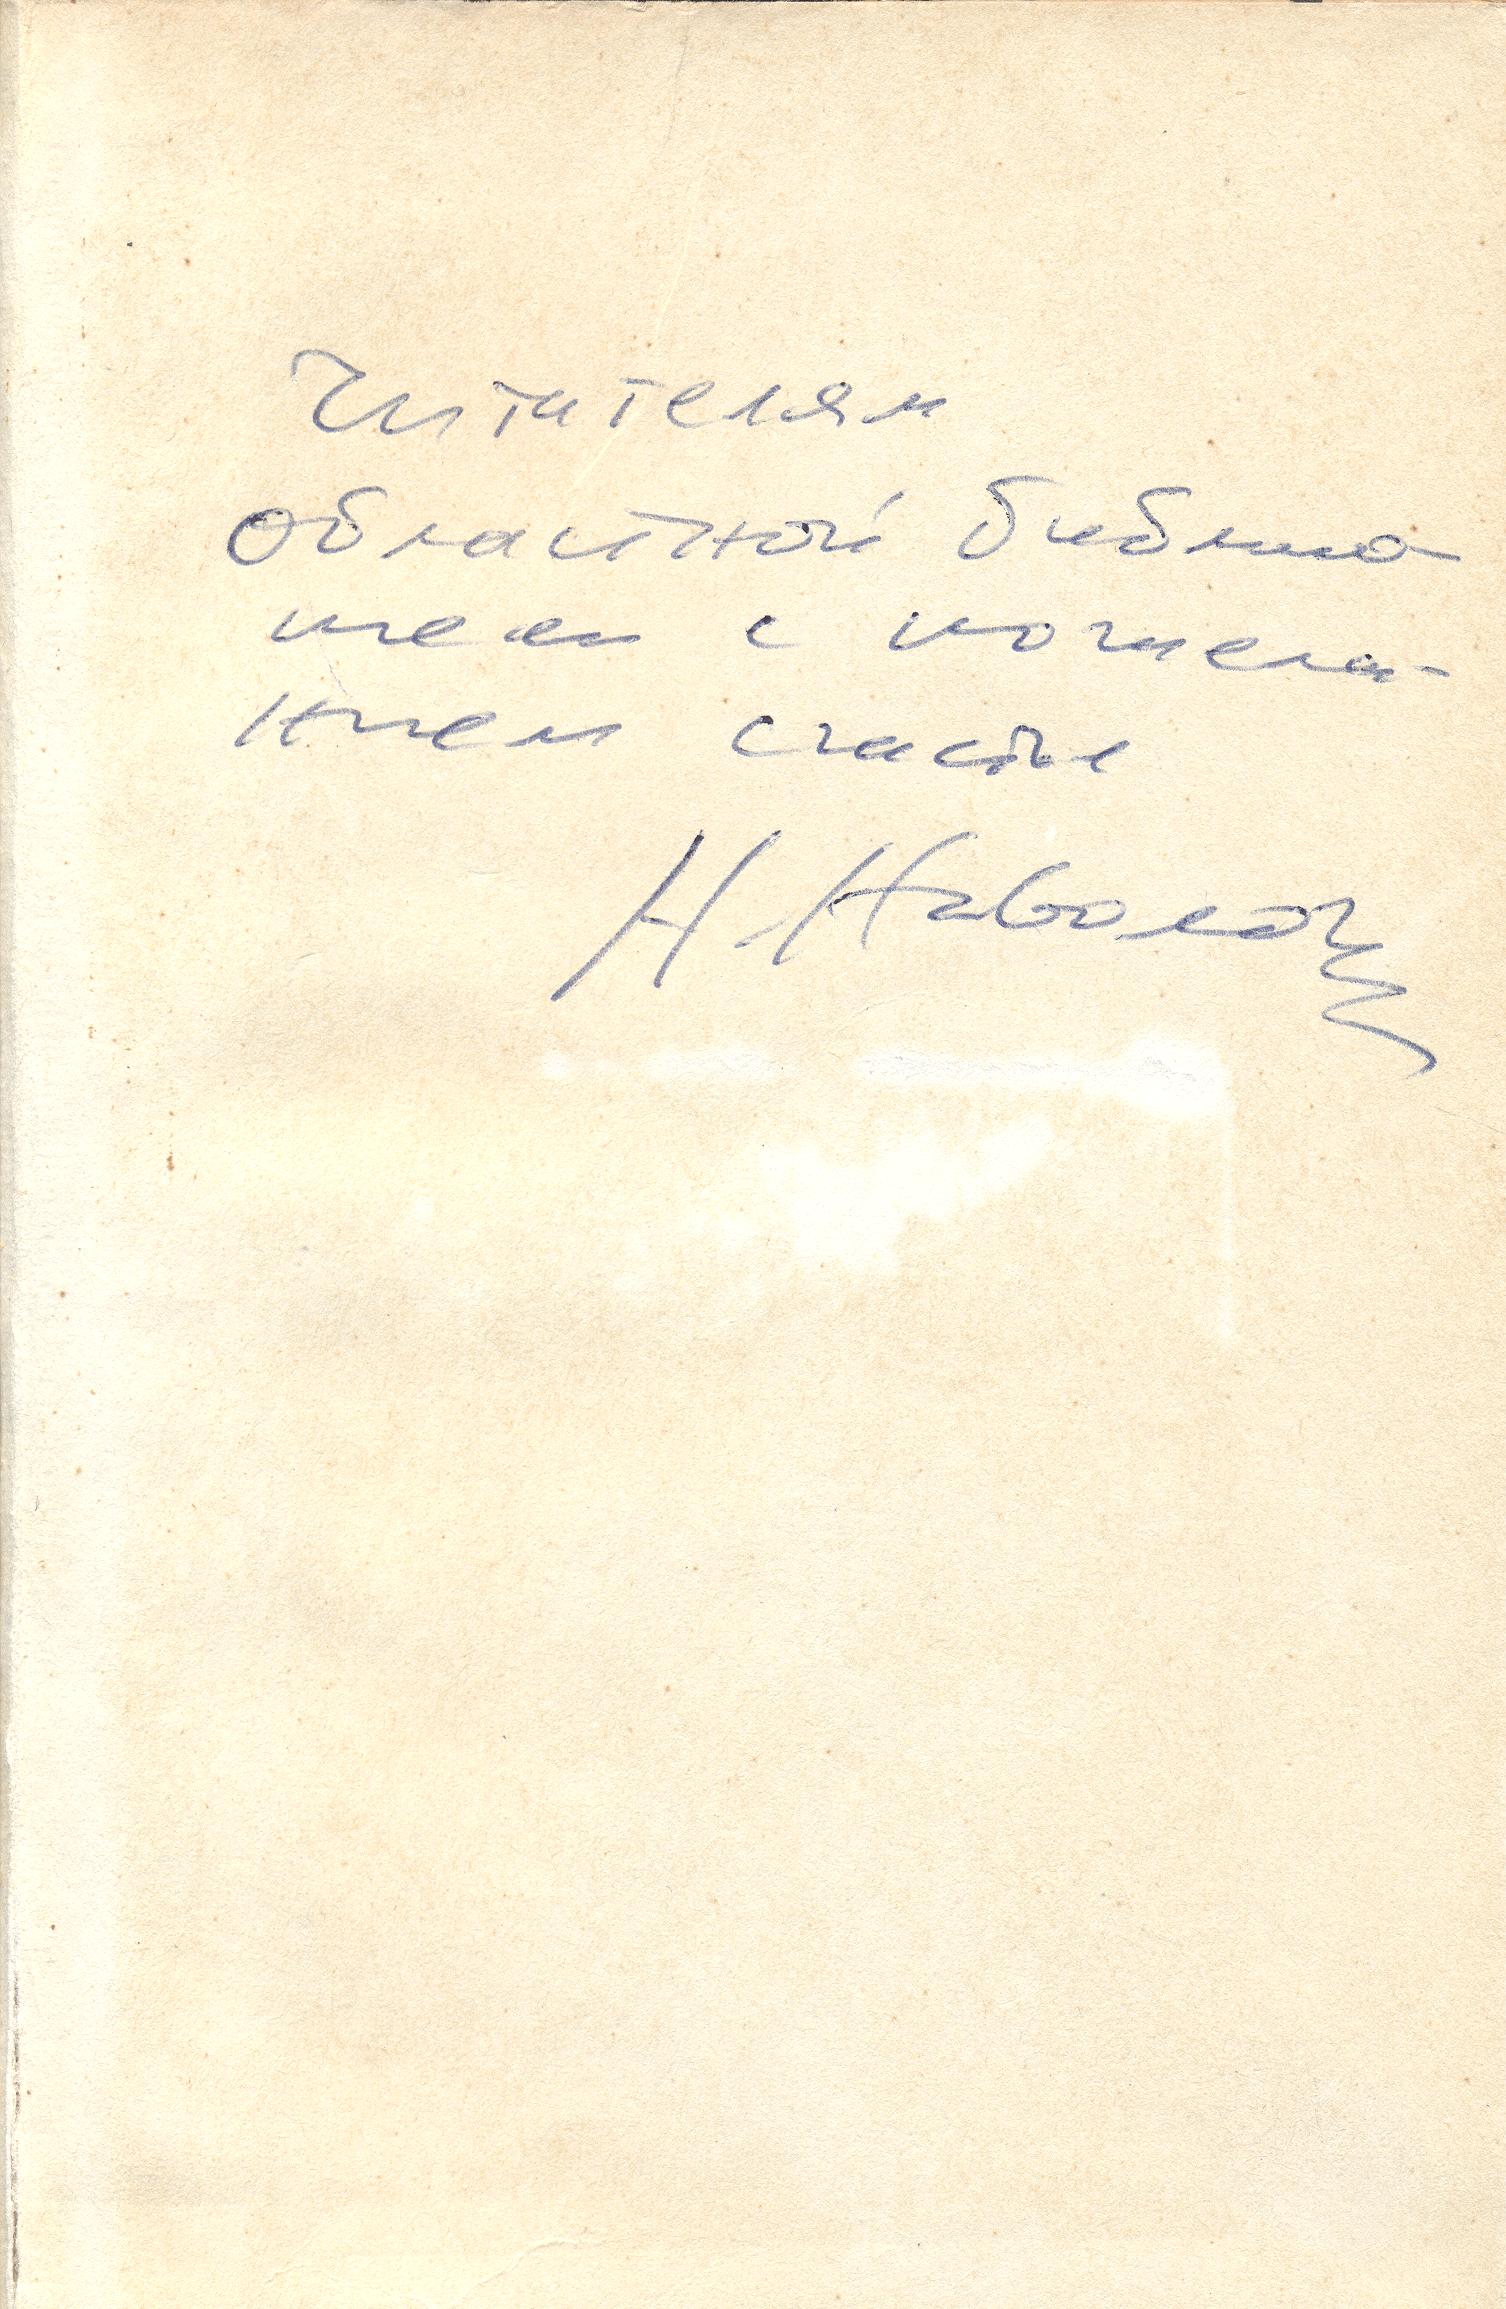 Читателям
областной библио-
теки с пожела-
нием счастья
Н.